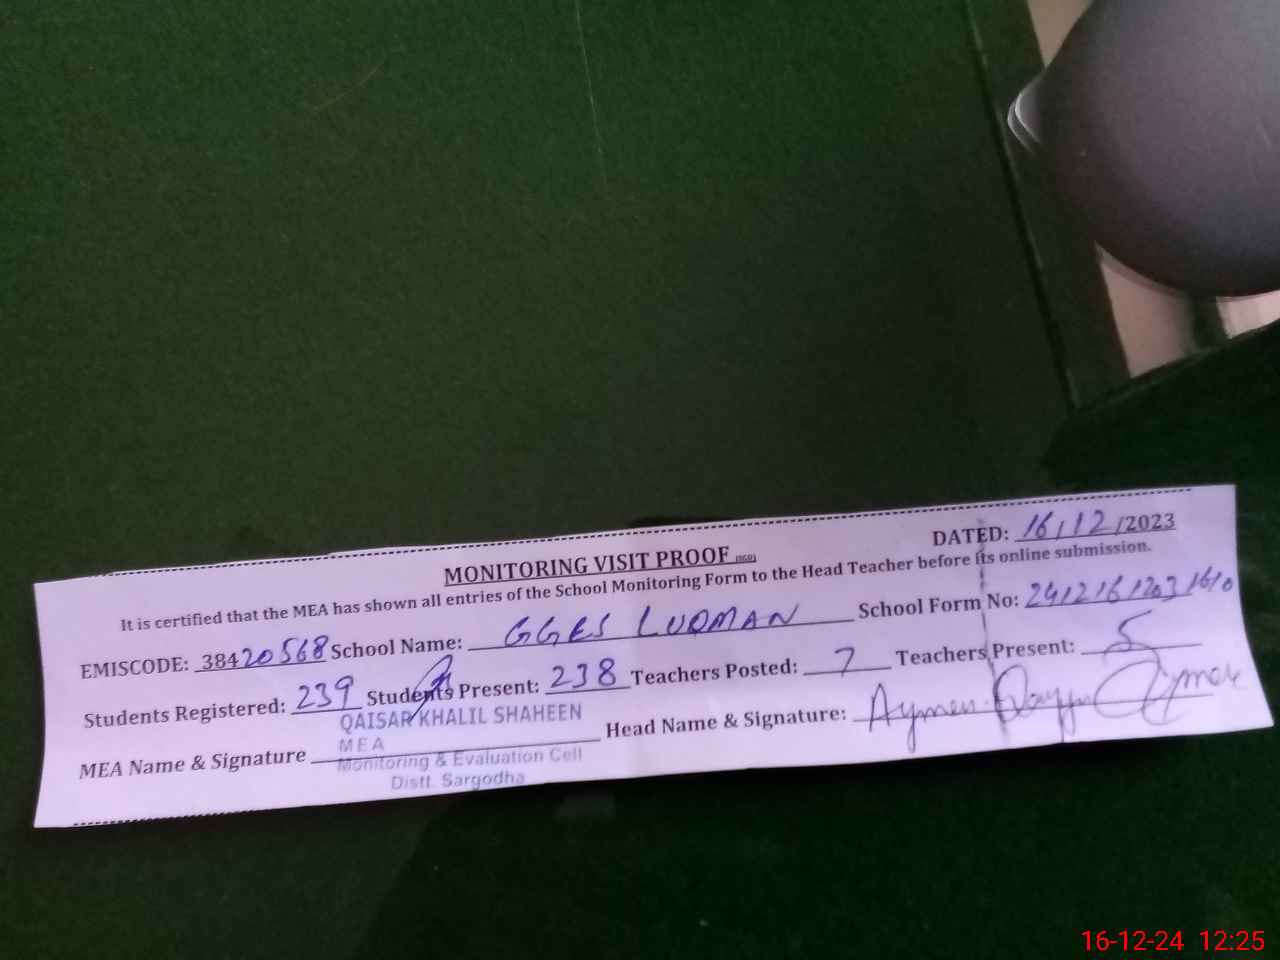 MONITORING VISIT PROOF DATED: 16/12/2023
It is certified that the MEA has shown all entries of the School Monitoring Form to the Head Teacher before its online submission.
EMISCODE: 38420568 School Name: GGES LUQMAN School Form No:
Students Registered: 239 Students Present: 238 Teachers Posted: 7 Teachers Present: 5
MEA Name & Signature QAISAR KHALIL SHAHEEN Head Name & Signature: Aymen
MEA
Monitoring & Evaluation Cell
Distt. Sargodha
16-12-24 12:25